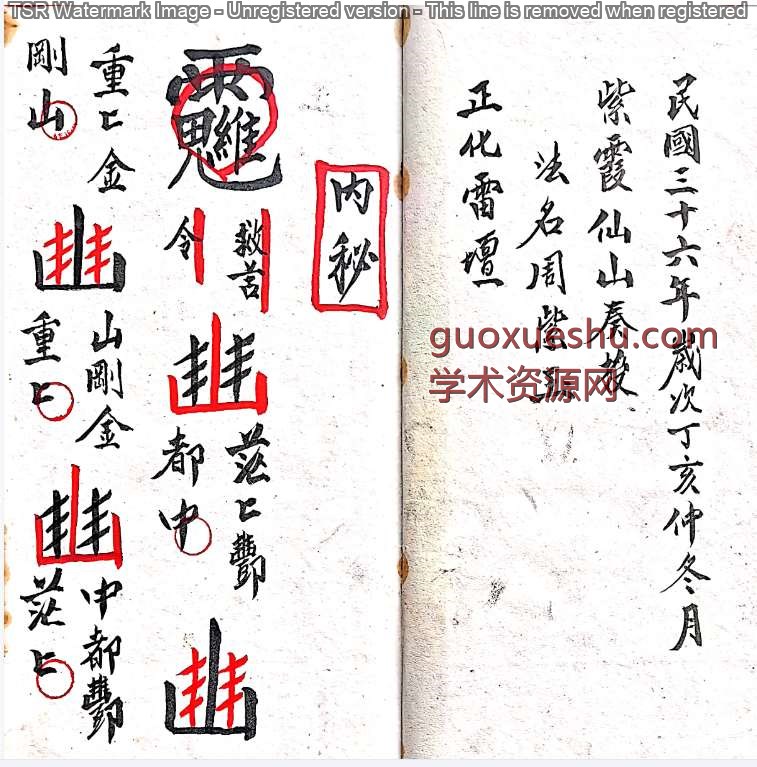 TSR Watermark Image - Unregistered version - This line is removed when registered
民國三十六年歲次丁亥仲冬月
紫霞仙山奏
法名周紫
正化雷壇
guoxueshu.com
学术资源网
内秘
救苦
令
茫〻酆
都中
重〻金
剛山
山剛金
重〻
中都酆
茫〻